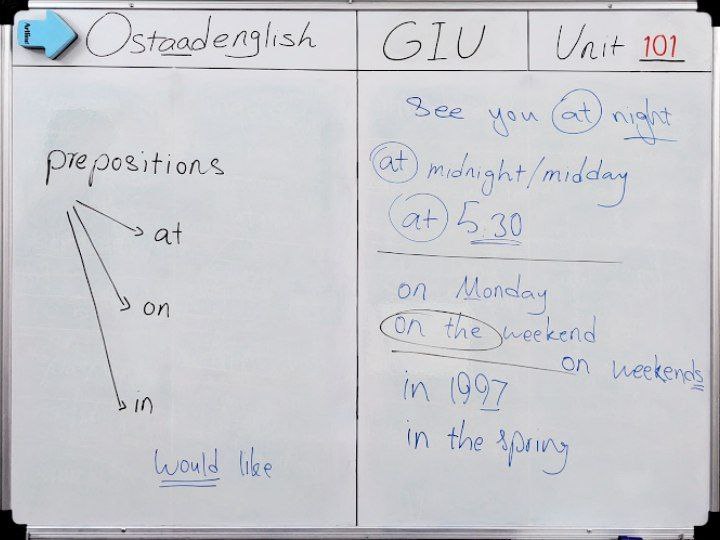 Ostaadenglish GIU Unit 101
prepositions
at
on
in
would like
See you at night
at midnight/midday
at 5:30
on Monday
on the weekend
on weekends
in 1997
in the spring